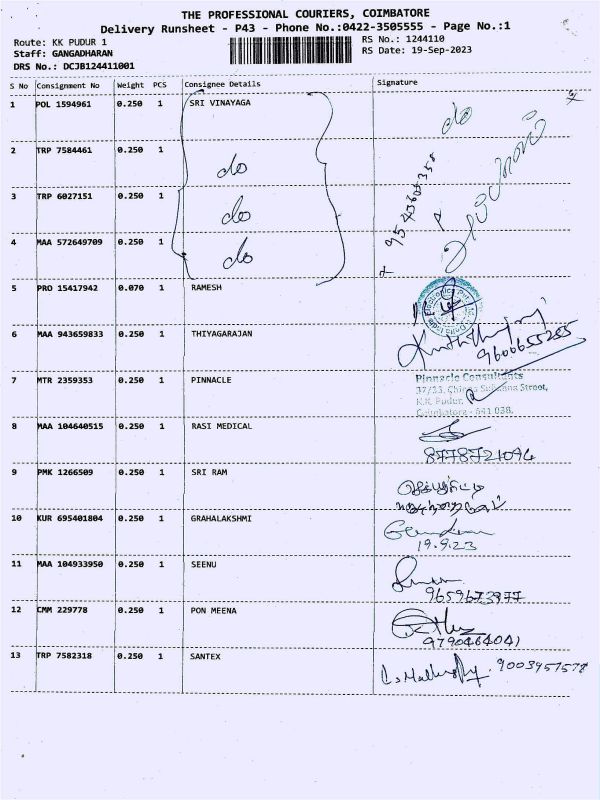 THE PROFESSIONAL COURIERS, COIMBATORE
Delivery Runsheet - P43 - Phone No.:0422-3505555 - Page No.:1
Route: KK PUDUR 1 RS No.: 1244110
Staff: GANGADHARAN RS Date: 19-Sep-2023
DRS No.: DCJB124411001
S No Consignment No Weight PCS Consignee Details Signature
1 POL 1594961 0.250 1 SRI VINAYAGA do
2 TRP 7584461 0.250 1 do
3 TRP 6027151 0.250 1 do
4 MAA 572649709 0.250 1 do
5 PRO 15417942 0.070 1 RAMESH
6 MAA 943659833 0.250 1 THIYAGARAJAN 9600655255
7 MTR 2359353 0.250 1 PINNACLE Pinnacle Consultants
37/33, Chinna Subbana Street,
K.K. Pudur,
Coimbatore - 641 038.
8 MAA 104640515 0.250 1 RASI MEDICAL 8778721094
9 PMK 1266509 0.250 1 SRI RAM
10 KUR 695401804 0.250 1 GRAHALAKSHMI
19.9.23
11 MAA 104933950 0.250 1 SEENU
9659673977
12 CMM 229778 0.250 1 PON MEENA
9790464041
13 TRP 7582318 0.250 1 SANTEX 9003957578